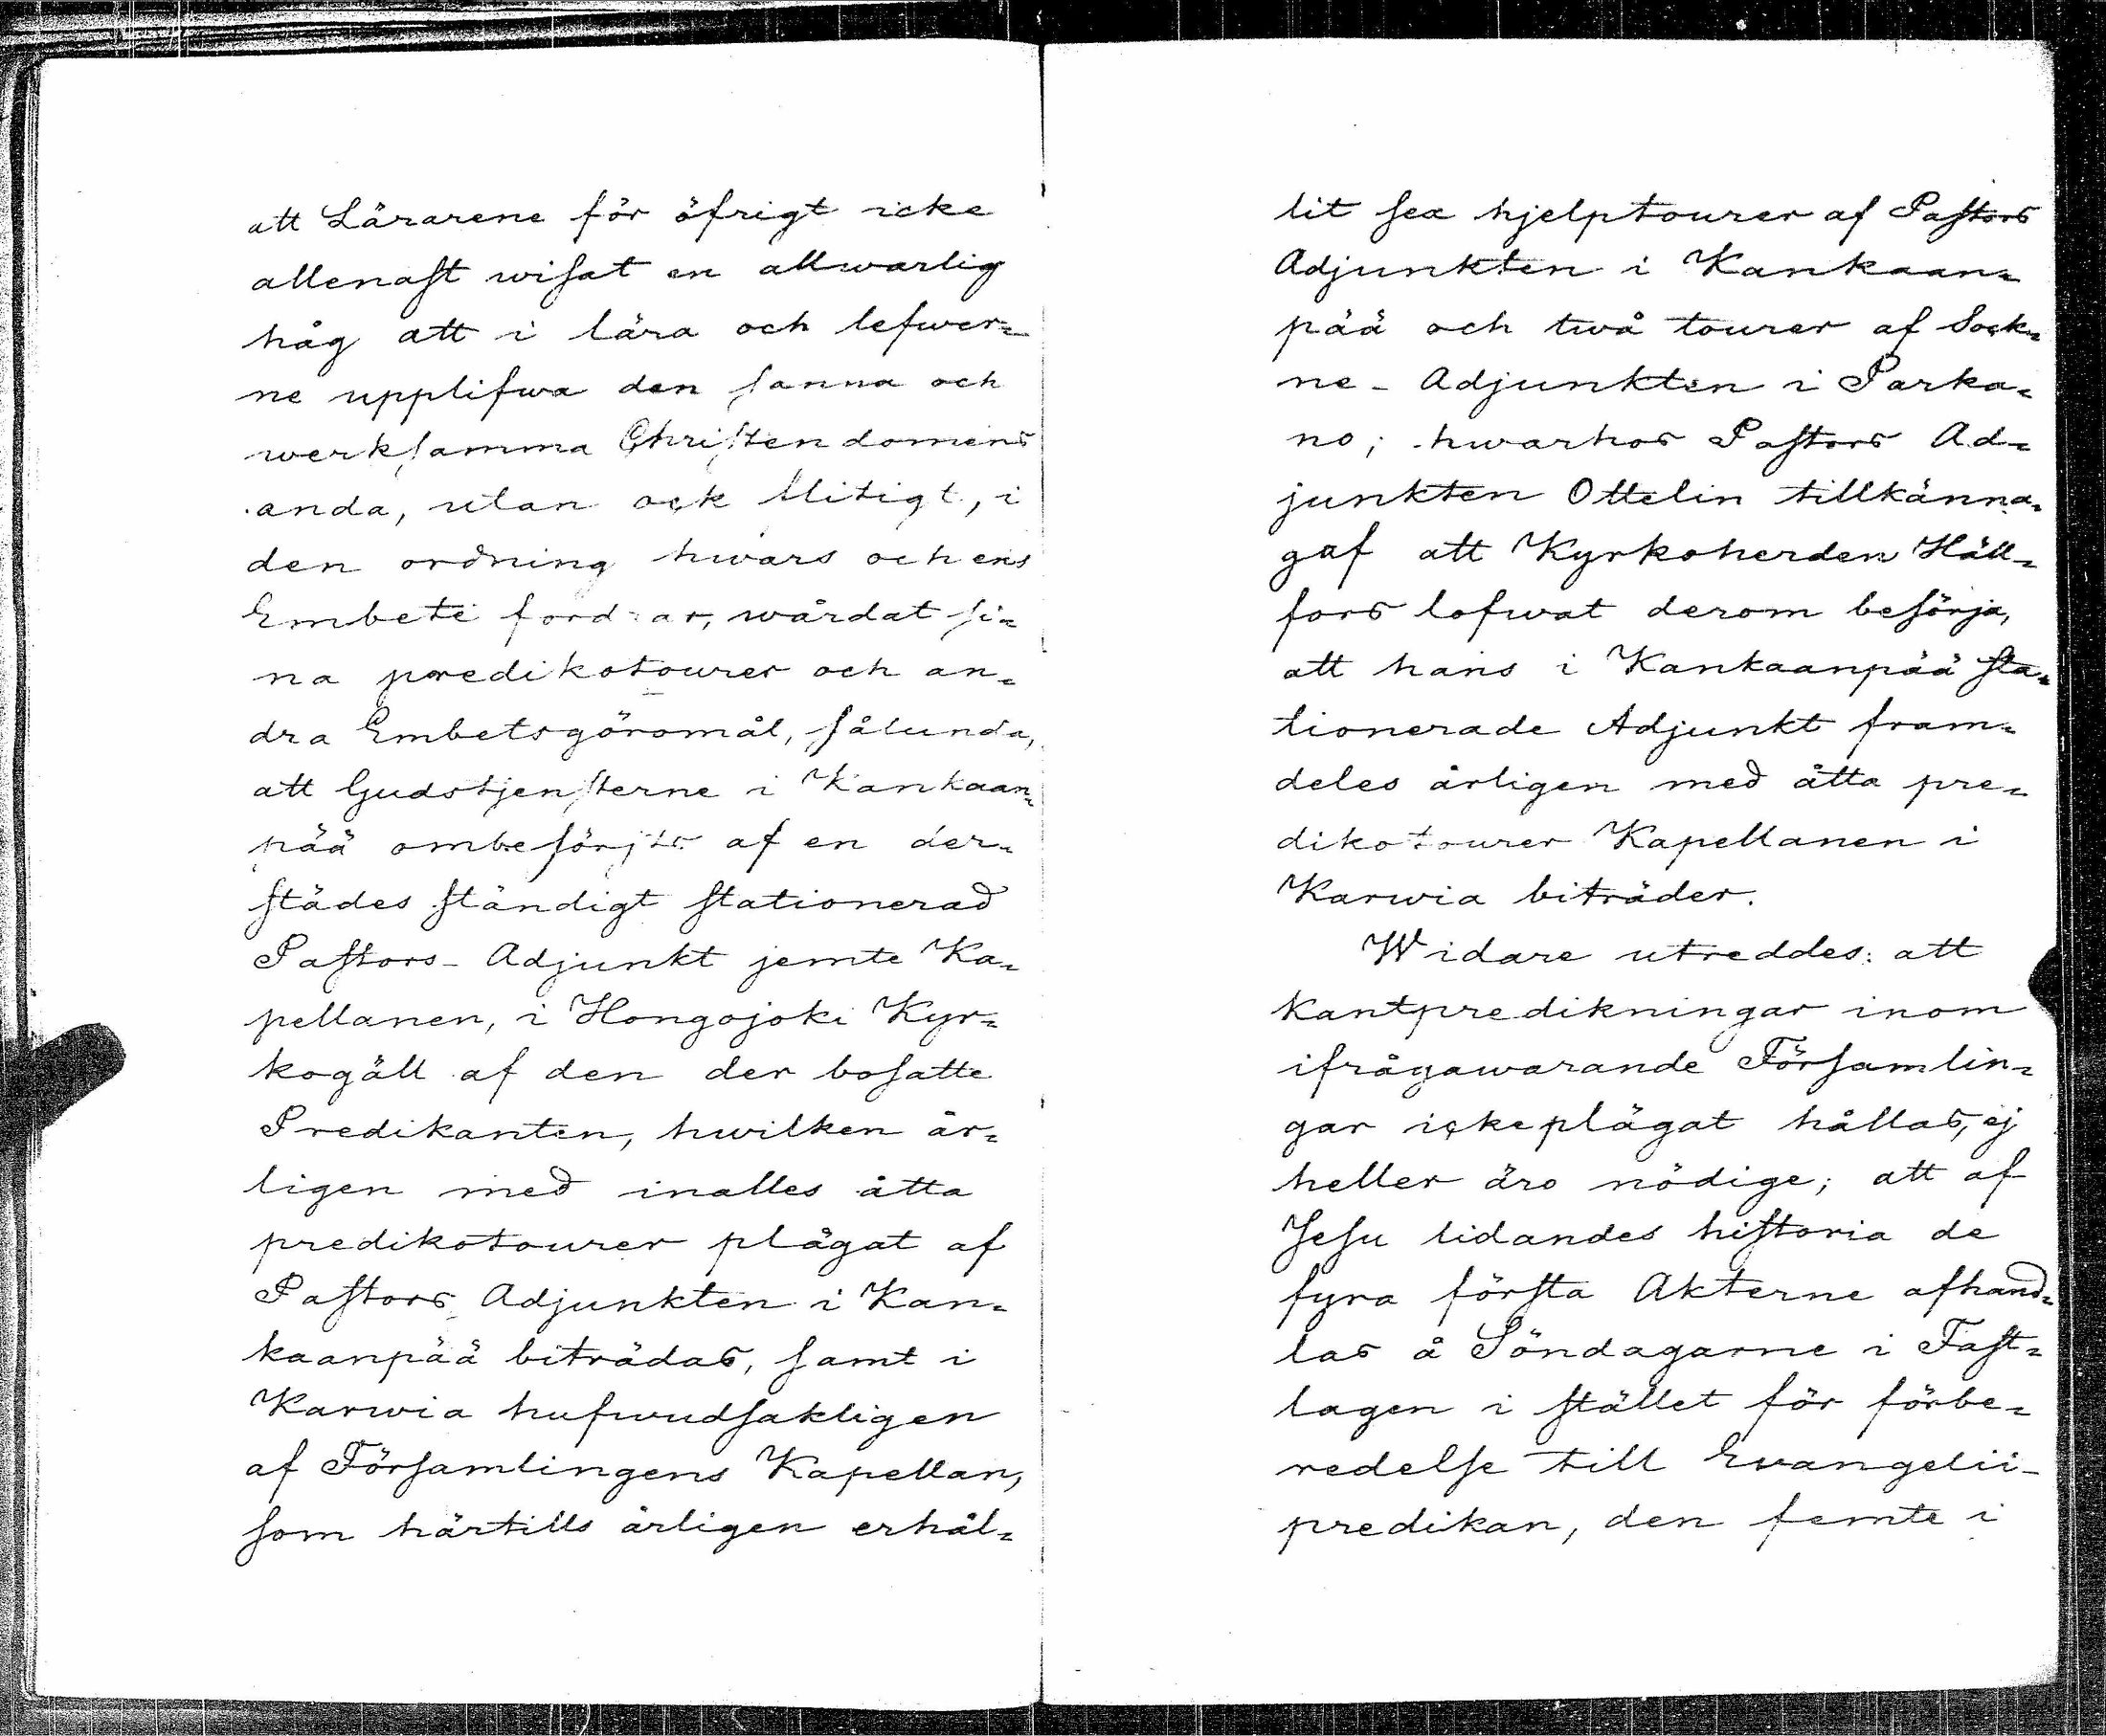 att Lärarene för öfrigt icke
allenast wisat en allwarlig
håg att i lära och lefwer=
ne upplifwa den sanna och
werksamma Christendomens
anda, utan ock flitigt, i
den ordning hwars och ens
Embete fordrar, wårdat si=
na predikotourer och an=
dra Embetsgöromål, sålunda,
att Gudstjensterne i Kankaan=
pää ombesörjts af en der=
städes ständigt stationerad
Pastors-Adjunkt jemte Ka=
pellanen, i Hongojoki Kyr=
kogäll af den der bosatte
Predikanten, hwilken år=
ligen med inalles åtta
predikotourer plägat af
Pastors Adjunkten i Kan=
kaanpää biträdas, samt i
Karwia hufwudsakligen
af Församlingens Kapellan,
som härtills årligen erhål=
lit sex hjelptourer af Pastors
Adjunkten i Kankaan=
pää och twå tourer af Sock=
ne-Adjunkten i Parka=
no; hwarhos Pastors Ad=
junkten Ottelin tillkänna=
gaf att Kyrkoherden Häll=
fors lofwat derom besörja,
att hans i Kankaanpää sta=
tionerade Adjunkt fram=
deles årligen med åtta pre=
dikotourer Kapellanen i
Karwia biträder.
Widare utreddes: att
kantpredikningar inom
ifrågawarande Församlin=
gar icke plägat hållas, ej
heller äro nödige; att af
Jesu lidandes historia de
fyra första Akterne afhand=
las å Söndagarne i Fast=
lagen i stället för förbe=
redelse till Evangelii-
predikan, den femte i